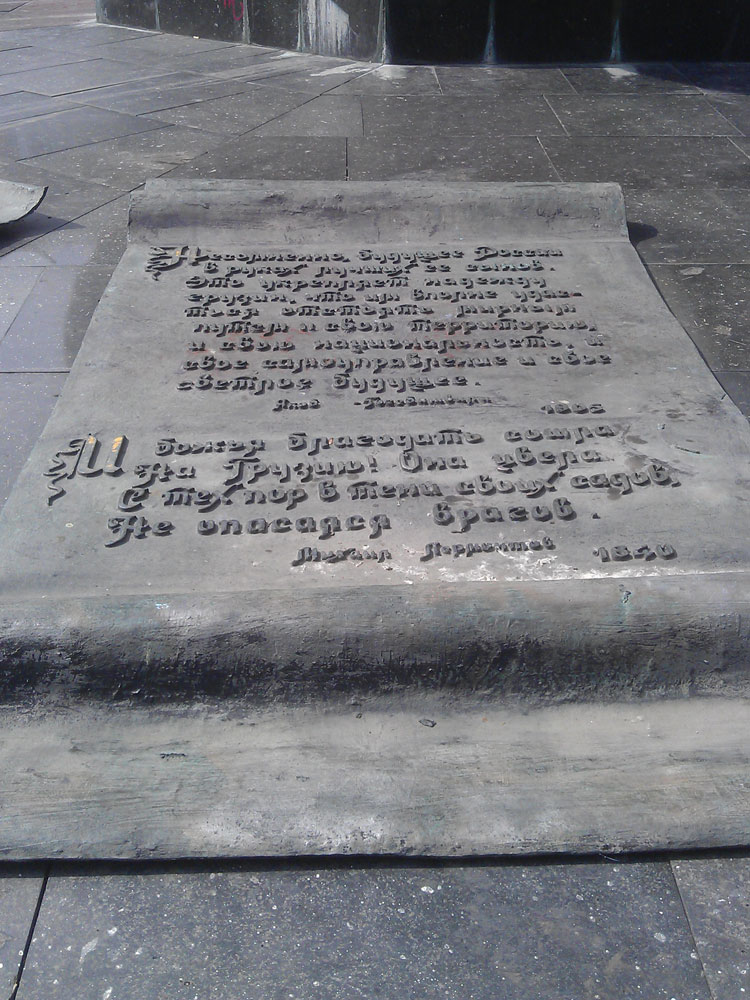 Несомненно, будущее России
в руках лучших ее сынов.
Это укрепляет надежду
грузин, что им вполне удас-
ться отстоять мирным
путем и свою территорию,
и свою национальность, и
свое самоуправление и свое
светлое будущее.
Яков 1805
И божья благодать сошла
На Грузию! Она цвела
С тех пор в тени своих садов,
Не опасаяся врагов.
Михаил Лермонтов 1840